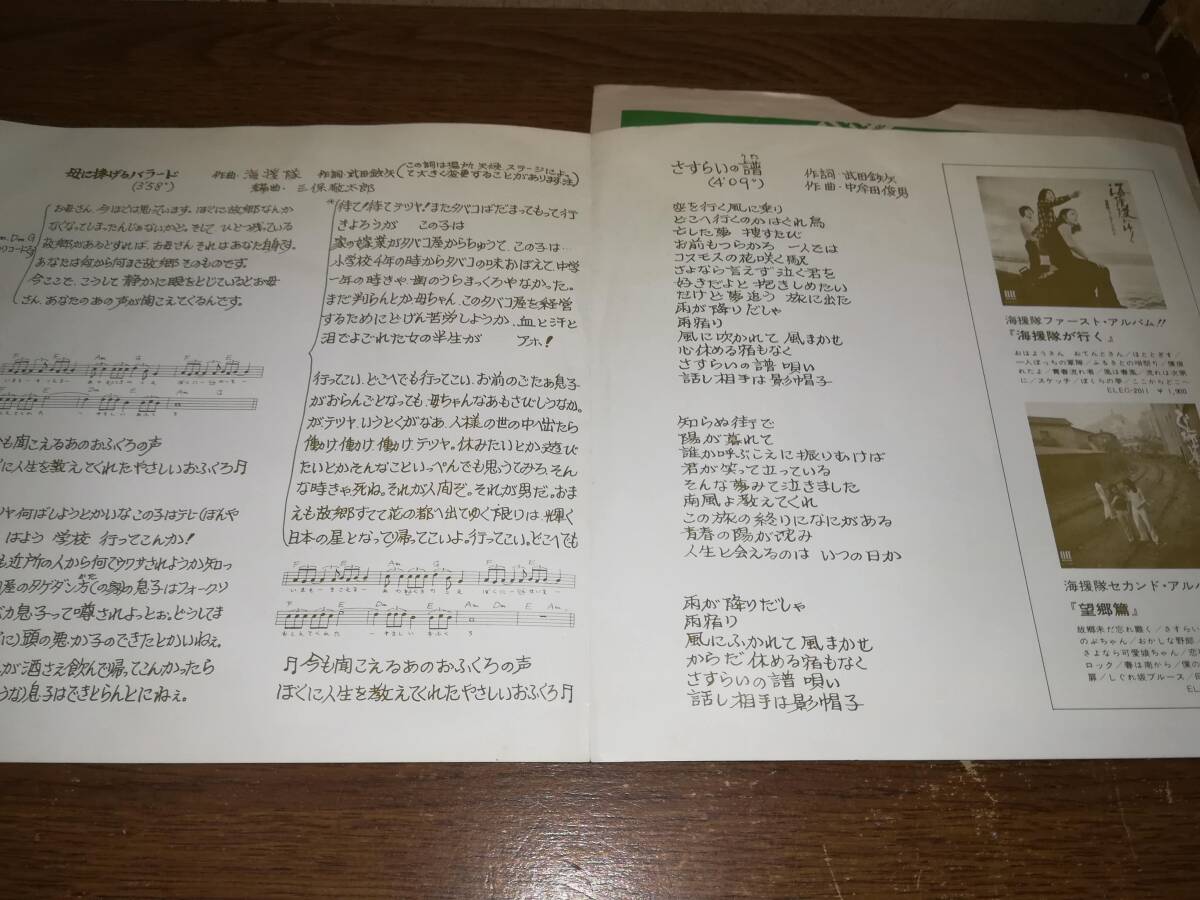 母に捧げるバラード
(3'58")
作曲・海援隊 作詞・武田鉄矢
(この詞は場所 天候 ステージによって大きく変更することがあります 注)
編曲・三保敬太郎
お母さん、今ぼくは思っています。ぼくに故郷なんか
なくなってしまったんじゃないかと。そして、ひとつ残っている
故郷があるとすれば、お母さん それはあなた自身です。
あなたは何から何まで故郷そのものです。
今ここで、こうして静かに眼をとじているとお母
さん、あなたのあの声が聞こえてくるんです。
Am. Dm G
F E Am G F E
F E Am Dm E Am
も聞こえるあのおふくろの声
に人生を教えてくれたやさしいおふくろ
ツヤ何ばしようとかいなこの子はテレビばんや
はよう 学校 行ってこんか!
も近所の人から何てウワサされようか知っ
屋のタケダン方(かた)(の家)の息子はフォークソ
カ息子って噂されよっとぉ、どうしてま
に)頭の悪か子のできたとかいねぇ。
んが酒さえ飲んで帰ってこんかったら
うな)息子はできとらんとにねぇ。
*待て!待てテツヤ!またタバコばだまってもって行
きよろうが この子は
家の嫁業がタバコ屋からちゅうて、この子は…
小学校4年の時からタバコの味おぼえて、中学
一年の時きゃ・歯のうらまっくろやなかった。
まだ判らんとか母ちゃん、このタバコ屋を経営
するためにどげん苦労しようか、血と汗と
泪でよごれた女の半生が アホ!
行ってこい、どこへでも行ってこい、お前のごたぁ息子
がおらんごとなっても 母ちゃんなあもさびしうなか。
がテツヤ、いうとくがなあ、人様の世の中へ出たら
働け、働け、働け、テツヤ。休みたいとか遊び
たいとかそんなこといっぺんでも思うてみろ、そん
な時きゃ死ね。それが人間ぞ。それが男だ。おま
えも故郷すてて花の都へ出てゆく限りは、輝く
日本の星となって帰ってこいよ。行ってこい。どこへでも
F E Am G F E
いまもーきこえるー あのおふくろのこえ ぼくにー じんせいをー
F E Am Dm E Am
もしえてくれたー やさしい おふくろ
今も聞こえるあのおふくろの声
ぼくに人生を教えてくれたやさしいおふくろ
さすらいの譜(うた)
(4'09")
作詞・武田鉄矢
作曲・中牟田俊男
空を行く風に乗り
どこへ行くのかはぐれ鳥
亡した夢 捜すたび
お前もつらかろ 一人では
コスモスの花咲く駅
さよなら言えず泣く君を
好きだよと抱きしめたい
だけど夢追う 旅に出た
雨が降りだしゃ
雨宿り
風に吹かれて 風まかせ
心休める宿もなく
さすらいの譜 唄い
話し相手は影帽子
知らぬ街で
陽が暮れて
誰か呼ぶこえに振りむけば
君が笑って立っている
そんな夢みて泣きました
南風よ教えてくれ
この旅の終りになにがある
青春の陽が沈み
人生と会えるのは いつの日か
雨が降りだしゃ
雨宿り
風にふかれて 風まかせ
からだ休める宿もなく
さすらいの譜 唄い
話し相手は影帽子
海援隊がゆく
海援隊ファースト・アルバム!!
『海援隊が行く』
おはようさん おてんとさん/ほととぎす/
一人ぼっちの軍隊/ふるさとの唄祭り/
れたよ/青春流れ者/風は春風/流れは次第
に/スケッチ/ぼくらの夢/ここからどこへ
ELEC-2011 ¥1,900
海援隊セカンド・アル
『望郷篇』
故郷未だ忘れ難く/さすらい
のぶちゃん/おかしな野郎
さよなら可愛娘ちゃん/
ロック/春は南から/僕の
扉/しぐれ坂ブルース/
ELE